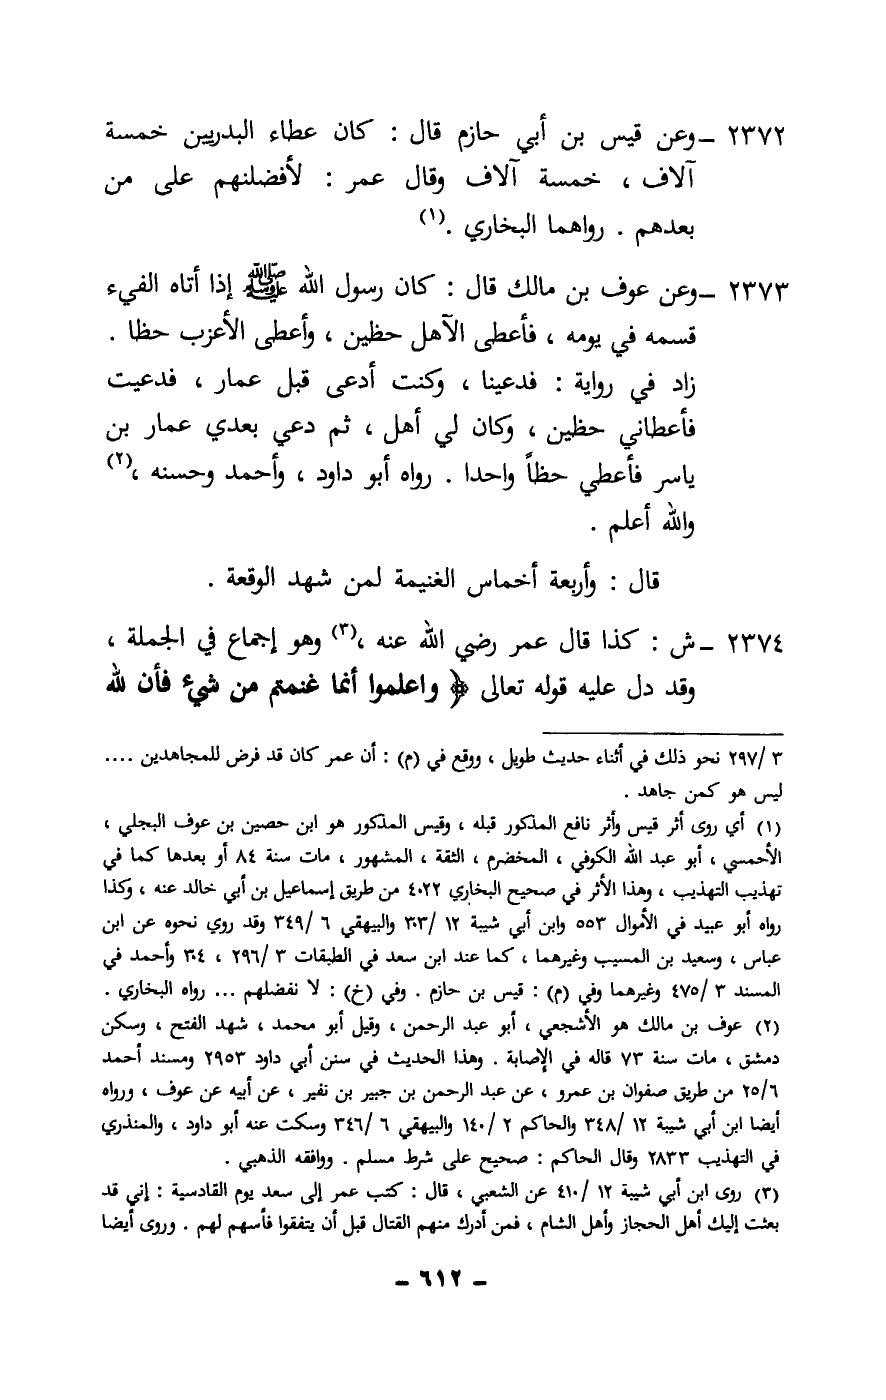 ٢٣٧٢ ـ وعن قيس بن أبي حازم قال : كان عطاء البدريين خمسة
آلاف ، خمسة آلاف وقال عمر : لأفضلنهم على من
بعدهم . رواهما البخاري .(١)
٢٣٧٣ ـ وعن عوف بن مالك قال : كان رسول الله ﷺ إذا أتاه الفيء
قسمه في يومه ، فأعطى الآهل حظين ، وأعطى الأعزب حظا .
زاد في رواية : فدعينا ، وكنت أدعى قبل عمار ، فدعيت
فأعطاني حظين ، وكان لي أهل ، ثم دعي بعدي عمار بن
ياسر فأعطي حظاً واحدا . رواه أبو داود ، وأحمد وحسنه ،(٢)
والله أعلم .
قال : وأربعة أخماس الغنيمة لمن شهد الوقعة .
٢٣٧٤ ـ ش : كذا قال عمر رضي الله عنه ،(٣) وهو إجماع في الجملة ،
وقد دل عليه قوله تعالى ﴿ واعلموا أنما غنمتم من شيء فأن لله
٣ /٢٩٧ نحو ذلك في أثناء حديث طويل ، ووقع في (م) : أن عمر كان قد فرض للمجاهدين ....
ليس هو كمن جاهد .
(١) أي روى أثر قيس وأثر نافع المذكور قبله ، وقيس المذكور هو ابن حصين بن عوف البجلي ،
الأحمسي ، أبو عبد الله الكوفي ، المخضرم ، الثقة ، المشهور ، مات سنة ٨٤ أو بعدها كما في
تهذيب التهذيب ، وهذا الأثر في صحيح البخاري ٤٠٢٢ من طريق إسماعيل بن أبي خالد عنه ، وكذا
رواه أبو عبيد في الأموال ٥٥٣ وابن أبي شيبة ١٢ /٣٠٣ والبيهقي ٦ /٣٤٩ وقد روي نحوه عن ابن
عباس ، وسعيد بن المسيب وغيرهما ، كما عند ابن سعد في الطبقات ٣ /٢٩٦ ، ٣٠٤ وأحمد في
المسند ٣ /٤٧٥ وغيرهما وفي (م) : قيس بن حازم . وفي (خ) : لا نفضلهم ... رواه البخاري .
(٢) عوف بن مالك هو الأشجعي ، أبو عبد الرحمن ، وقيل أبو محمد ، شهد الفتح ، وسكن
دمشق ، مات سنة ٧٣ قاله في الإصابة . وهذا الحديث في سنن أبي داود ٢٩٥٣ ومسند أحمد
٢٥/٦ من طريق صفوان بن عمرو ، عن عبد الرحمن بن جبير بن نفير ، عن أبيه عن عوف ، ورواه
أيضا ابن أبي شيبة ١٢ /٣٤٨ والحاكم ٢ /١٤٠ والبيهقي ٦ /٣٤٦ وسكت عنه أبو داود ، والمنذري
في التهذيب ٢٨٣٣ وقال الحاكم : صحيح على شرط مسلم . ووافقه الذهبي .
(٣) روى ابن أبي شيبة ١٢ /٤١٠ عن الشعبي ، قال : كتب عمر إلى سعد يوم القادسية : إني قد
بعثت إليك أهل الحجاز وأهل الشام ، فمن أدرك منهم القتال قبل أن يتفقوا فأسهم لهم . وروى أيضا
ـ ٦١٢ ـ